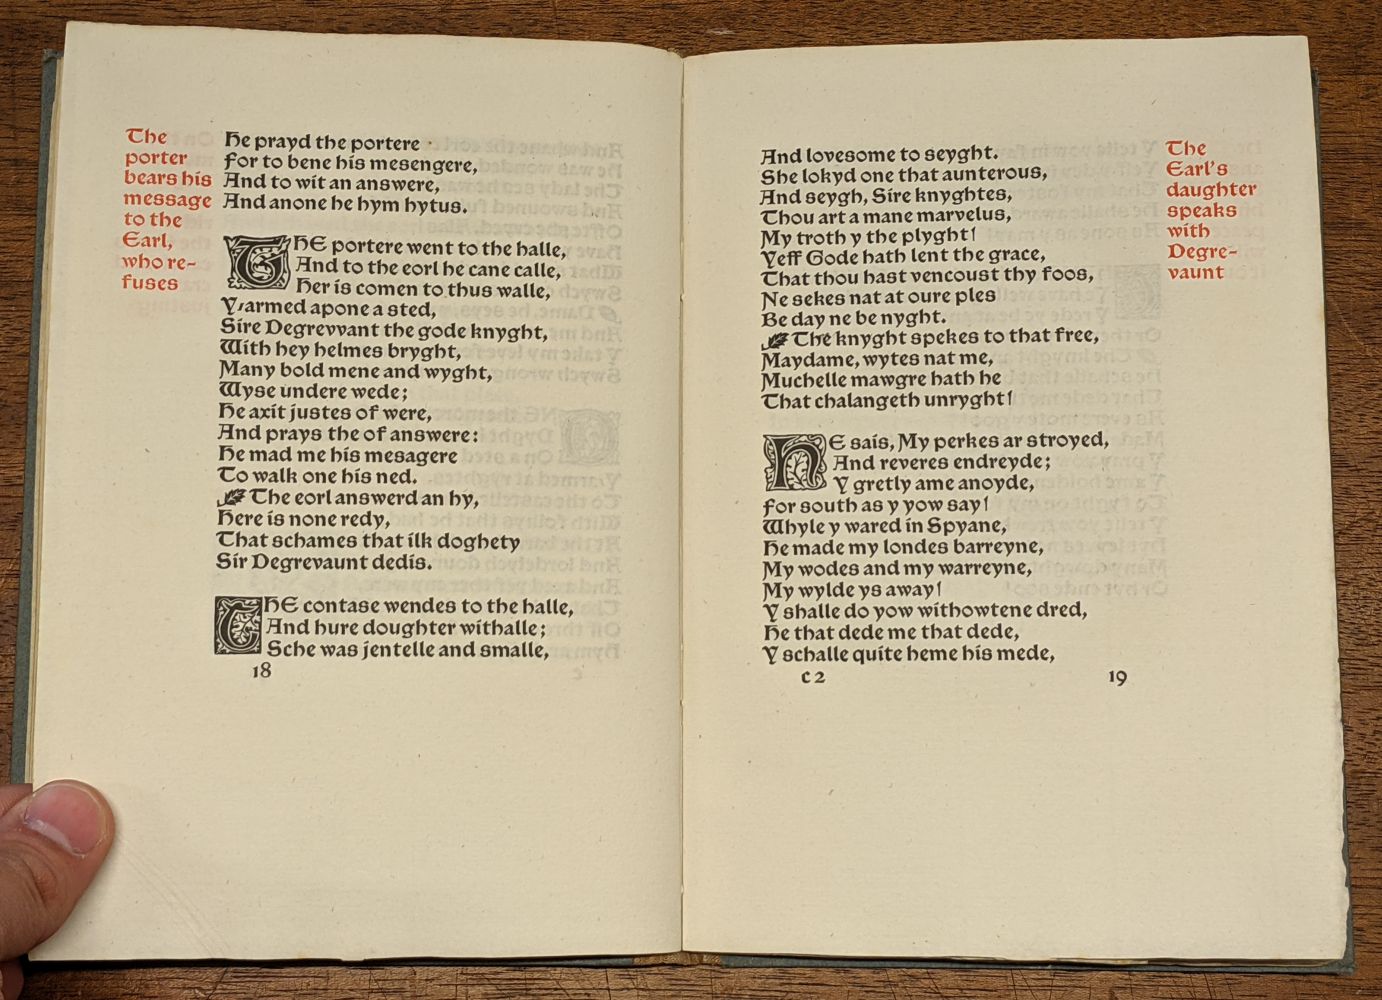 The
porter
bears his
message
to the
Earl,
who re-
fuses
He prayd the portere
For to bene his mesengere,
And to wit an answere,
And anone he hym hytus.
THE portere went to the halle,
And to the eorl he cane calle,
Her is comen to thus walle,
Y-armed apone a sted,
Sire Degrevvant the gode knyght,
With hey helmes bryght,
Many bold mene and wyght,
Wyse undere wede;
He axit justes of were,
And prays the of answere:
He mad me his mesagere
To walk one his ned.
The eorl answerd an hy,
Here is none redy,
That schames that ilk doghety
Sir Degrevaunt dedis.
THE contase wendes to the halle,
And hure doughter withalle;
Sche was jentelle and smalle,
18
And lovesome to seyght.
She lokyd one that aunterous,
And seygh, Sire knyghtes,
Thou art a mane marvelus,
My troth y the plyght!
Yeff Gode hath lent the grace,
That thou hast vencoust thy foos,
Ne sekes nat at oure ples
Be day ne be nyght.
The knyght spekes to that free,
Maydame, wytes nat me,
Muchelle mawgre hath he
That chalangeth unryght!
HE sais, My perkes ar stroyed,
And reveres endreyde;
Y gretly ame anoyde,
For south as y yow say!
Whyle y wared in Spyane,
He made my londes barreyne,
My wodes and my warreyne,
My wylde ys away!
Y shalle do yow withowtene dred,
He that dede me that dede,
Y schalle quite heme his mede,
c 2
19
The
Earl's
daughter
speaks
with
Degre-
vaunt